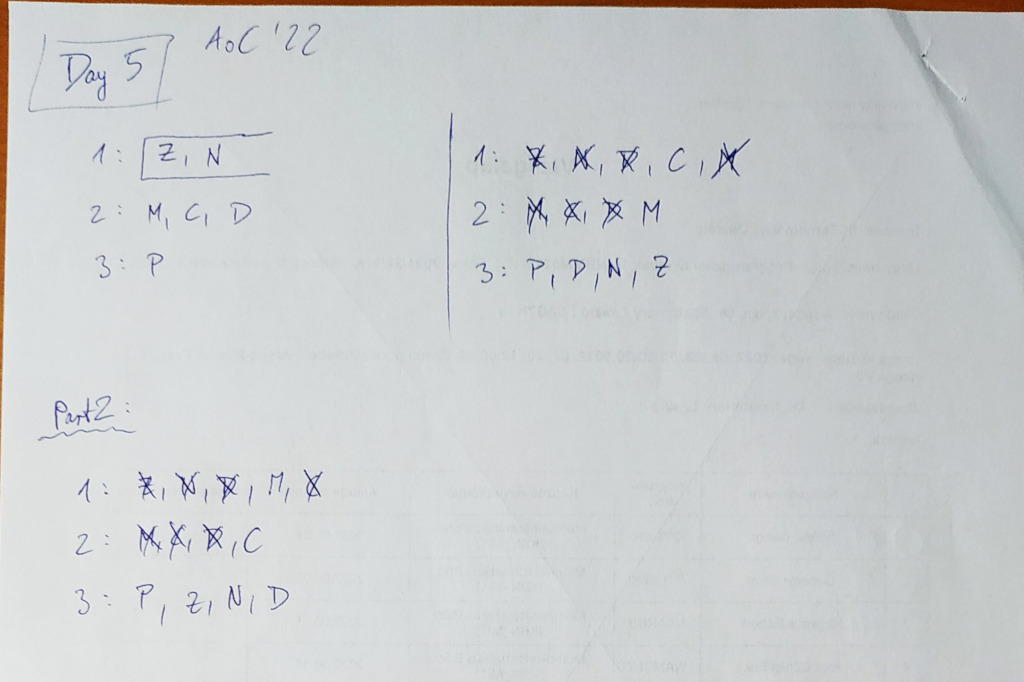 Day 5
AoC '22
1: Z, N
2: M, C, D
3: P
1: Z, N, D, C, M
2: M, C, D M
3: P, D, N, Z
Part 2:
1: Z, N, D, M, C
2: M, C, D, C
3: P, Z, N, D